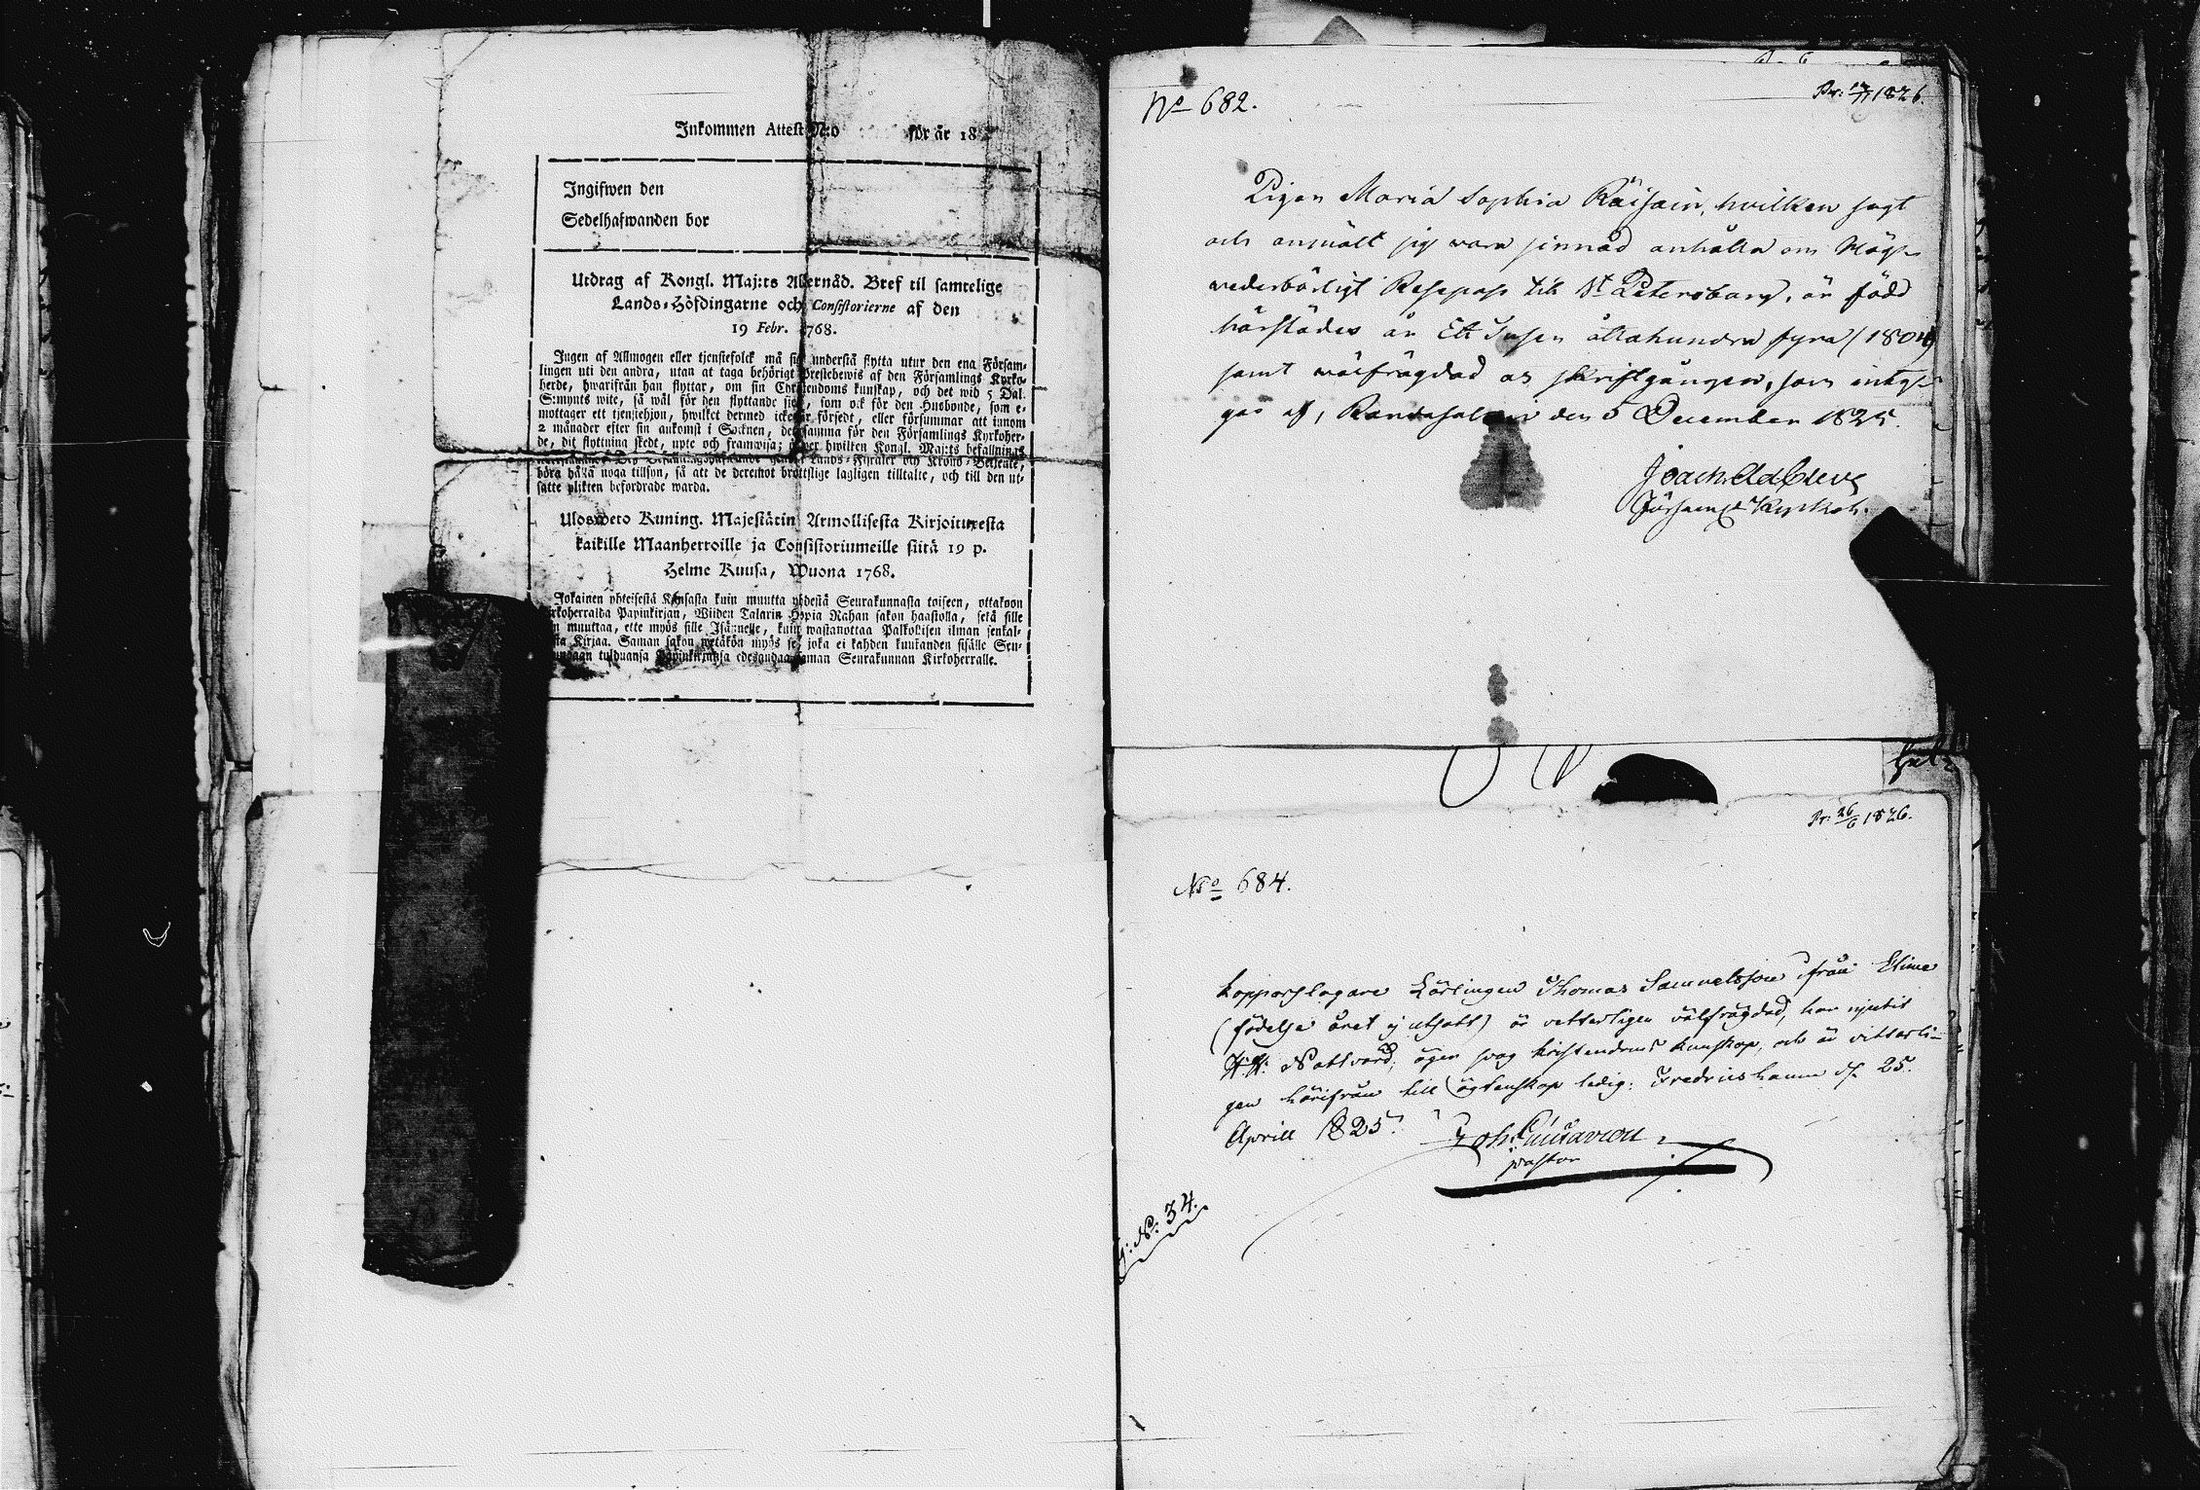 Inkommen Attest N:o för år 18
Ingifwen den
Sedelhafwanden bor
Utdrag af Kongl. Maj:ts Allernåd. Bref til samtelige
Lands-Höfdingarne och Consistorierne af den
19 Febr. 1768.
Ingen af Allmogen eller tjenstefolck må sig understå flytta utur den ena Försam-
lingen uti den andra, utan at taga behörigt Prestebewis af den Församlings Kyrko-
herde, hwarifrån han flyttar, om sin Christendoms kunskap, och det wid 5 Dal.
S:mynts wite, så wäl för den flyttande sielf, som ock för den Husbonde, som e-
mottager ett tjenstehjon, hwilket dermed icke är försedt, eller försummar att innom
2 månader efter sin ankomst i Socknen, det samma för den Församlings Kyrkoher-
de, dit flyttning skedt, upte och framwisa; öfwer hwilket Kongl. Maj:ts befallnings-
Lands-Fiscaler och Krono-Betjente,
böra hålla noga tillsyn, så att de deremot brottslige lagligen tilltalte, och till den ut-
satte plikten befordrade warda.
Ulosweto Kuning. Majestätin Armollisesta Kirjoituxesta
kaikille Maanherroille ja Consistoriumeille siitä 19 p.
Helme Kuusa, Wuona 1768.
Jokainen yhteisestä Kansasta kuin muutta yhdestä Seurakunnasta toiseen, ottakoon
Kirkoherralda Papinkirjan, Wiiden Talarin Hopia Rahan sakon haastolla, sekä sille
kuin muuttaa, ette myös sille Isännelle, kuin wastanottaa Palkollisen ilman senkal-
taista Kirjaa. Saman sakon wetäkön myös se, joka ei kahden kuukauden sisälle Seu-
rakundaan tulduansa Papinkirjansa edesandaa saman Seurakunnan Kirkoherralle.
No 682.
Pr: 1826.
Pigan Maria Sophia Räisäin, hvilken sagt
och anmält sig vara sinnad anhålla om Hög-
vederbörligt Resepass till St Petersburg, är född
härstädes år Ett Tusen åttahundra fyra (1804)
samt välfrägdad och skriftgången, som intyg-
gas af, Randasalmi den 5 December 1825.
Joach. Ad Cleve
Församl Kyrkoh.
Pr: 26/6 1826.
No 684.
Kopparslagare Lärlingen Thomas Samuelsson från Elime
(födelse året ej utsatt) är vetterligen välfrägdad, har njutit
H.H. Nattvard, äger svag kristendoms kunskap, och är vitterli-
gen härifrån till ägtenskap ledig: Fredrikshamn d. 25.
Aprill 1825.
Joh. Gustavson
pastor
N: 34.